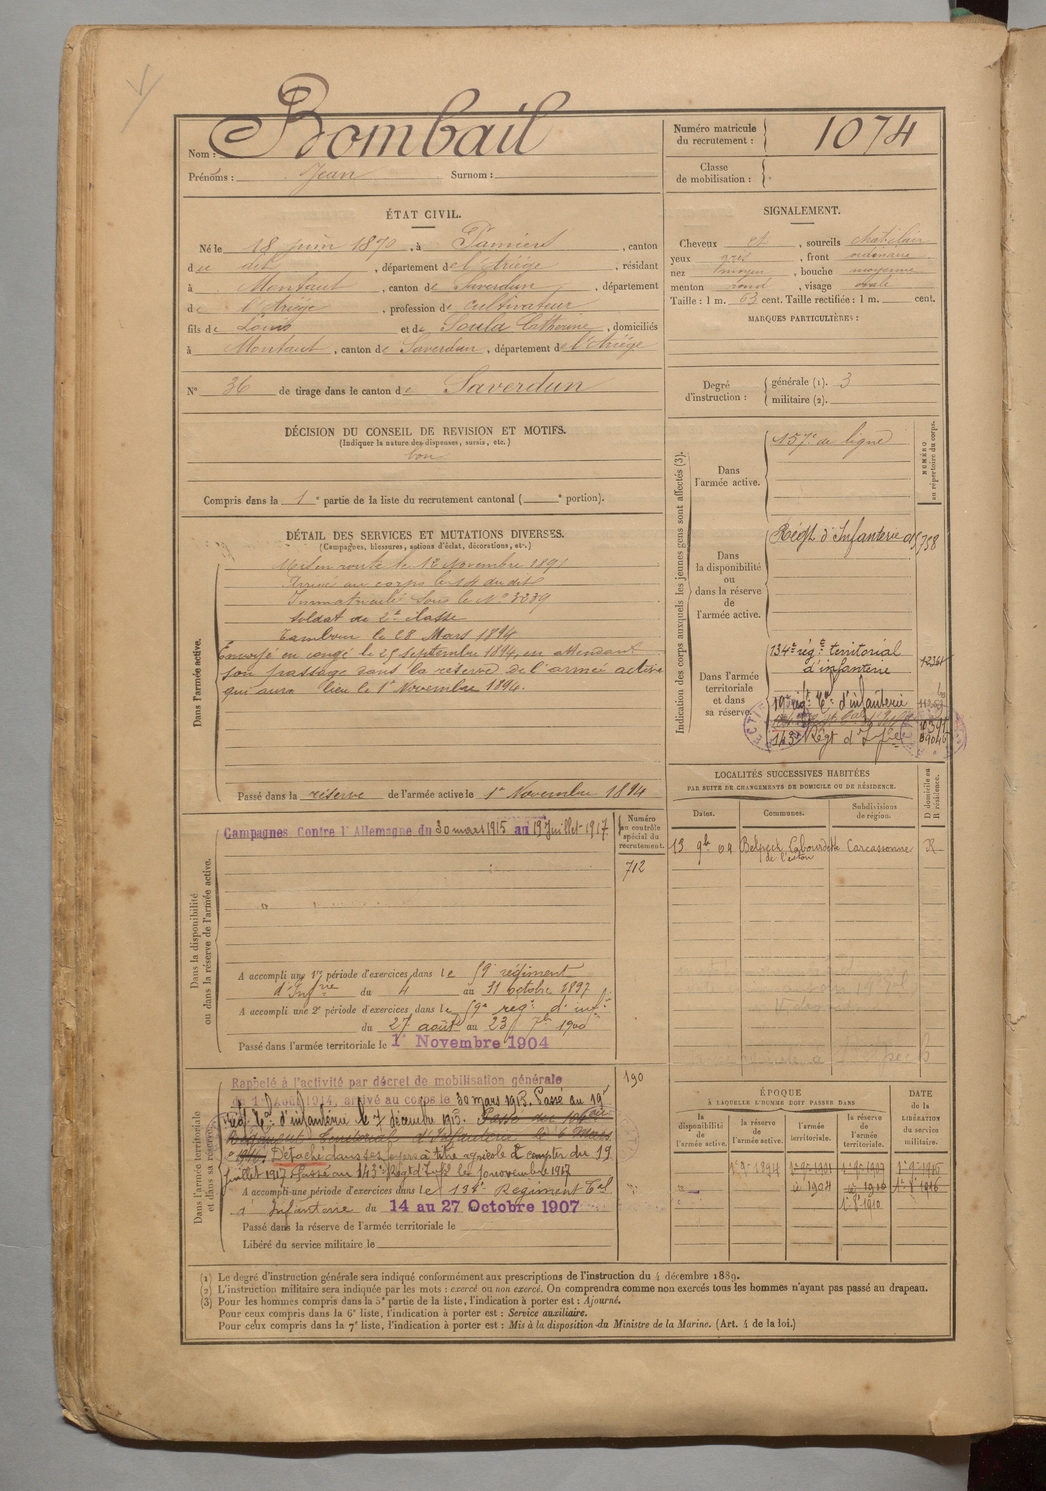 Nom : Bombail
Prénoms : Jean Surnom :
Numéro matricule du recrutement : 1074
Classe de mobilisation :
ÉTAT CIVIL.
Né le 18 juin 1870, à Pamiers, canton
de dit, département de l'Ariège, résidant
à Montaut, canton de Saverdun, département
de l'Ariège, profession de cultivateur
fils de Louis et de Soula Catherine, domiciliés
à Montaut, canton de Saverdun, département de l'Ariège
N° 36 de tirage dans le canton de Saverdun
SIGNALEMENT.
Cheveux et, sourcils chat clair
yeux gris, front ordinaire
nez moyen, bouche moyenne
menton rond, visage ovale
Taille : 1 m. 63 cent. Taille rectifiée : 1 m. cent.
MARQUES PARTICULIÈRES :
Degré d'instruction : générale (1). 3
militaire (2).
DÉCISION DU CONSEIL DE REVISION ET MOTIFS.
(Indiquer la nature des dispenses, sursis, etc.)
bon
Compris dans la 1e partie de la liste du recrutement cantonal ( e portion).
DÉTAIL DES SERVICES ET MUTATIONS DIVERSES.
(Campagnes, blessures, actions d'éclat, décorations, etc.)
Dans l'armée active.
Mis en route le 12 Novembre 1891
Arrivé au corps le 14 du dit
Immatriculé sous le N° 3239
soldat de 2e classe
Tambour le 28 Mars 1894
Envoyé en congé le 25 septembre 1894, en attendant
son passage dans la réserve de l'armée active
qui aura lieu le 1er Novembre 1894.
Passé dans la réserve de l'armée active le 1er Novembre 1894
Indication des corps auxquels les jeunes gens sont affectés (3).
NUMÉRO au répertoire du corps.
Dans l'armée active.
157e de ligne
Dans la disponibilité ou dans la réserve de l'armée active.
Régt d'Infanterie
Dans l'armée territoriale et dans sa réserve
134e rég.t territorial
d'infanterie
19e régt Tal d'infanterie
143e Régt d'Inf.ie
Dans la disponibilité ou dans la réserve de l'armée active.
Campagnes Contre l'Allemagne du 30 mars 1915 au 19 Juillet 1917.
Numéro au contrôle spécial du recrutement.
712
A accompli une 1re période d'exercices dans le 59e régiment
d'Infrie du 4 au 31 octobre 1897
A accompli une 2e période d'exercices dans le 59e regt d'inf.ie
du 27 août au 23 7bre 1900
Passé dans l'armée territoriale le 1er Novembre 1904
LOCALITÉS SUCCESSIVES HABITÉES
PAR SUITE DE CHANGEMENTS DE DOMICILE OU DE RÉSIDENCE.
Dates. Communes. Subdivisions de région. D domicile ou R résidence.
13 9bre 04 Belpech Labourdette Carcassonne R
Dans l'armée territoriale et dans sa réserve
190
Rappelé à l'activité par décret de mobilisation générale
du 1er Août 1914, arrivé au corps le 30 mars 1915. Passé au 19e
Régt Tal d'infanterie le 7 décembre 1915. Passé au
Régiment Territorial d'Infanterie le 6 Mars
1916. Détaché dans ses foyers à titre agricole à compter du 19
juillet 1917 Passé au 143e Régt d'Infie le 10 novembre 1917
A accompli une période d'exercices dans le 134e Régiment Tal
d'Infanterie du 14 au 27 Octobre 1907
Passé dans la réserve de l'armée territoriale le
Libéré du service militaire le
ÉPOQUE
À LAQUELLE L'HOMME DOIT PASSER DANS
la disponibilité de l'armée active. la réserve de l'armée active. l'armée territoriale. la réserve de l'armée territoriale.
DATE de la LIBÉRATION du service militaire.
(1) Le degré d'instruction générale sera indiqué conformément aux prescriptions de l'instruction du 4 décembre 1889.
(2) L'instruction militaire sera indiquée par les mots : exercé ou non exercé. On comprendra comme non exercés tous les hommes n'ayant pas passé au drapeau.
(3) Pour les hommes compris dans la 5e partie de la liste, l'indication à porter est : Ajourné.
Pour ceux compris dans la 6e liste, l'indication à porter est : Service auxiliaire.
Pour ceux compris dans la 7e liste, l'indication à porter est : Mis à la disposition du Ministre de la Marine. (Art. 4 de la loi.)